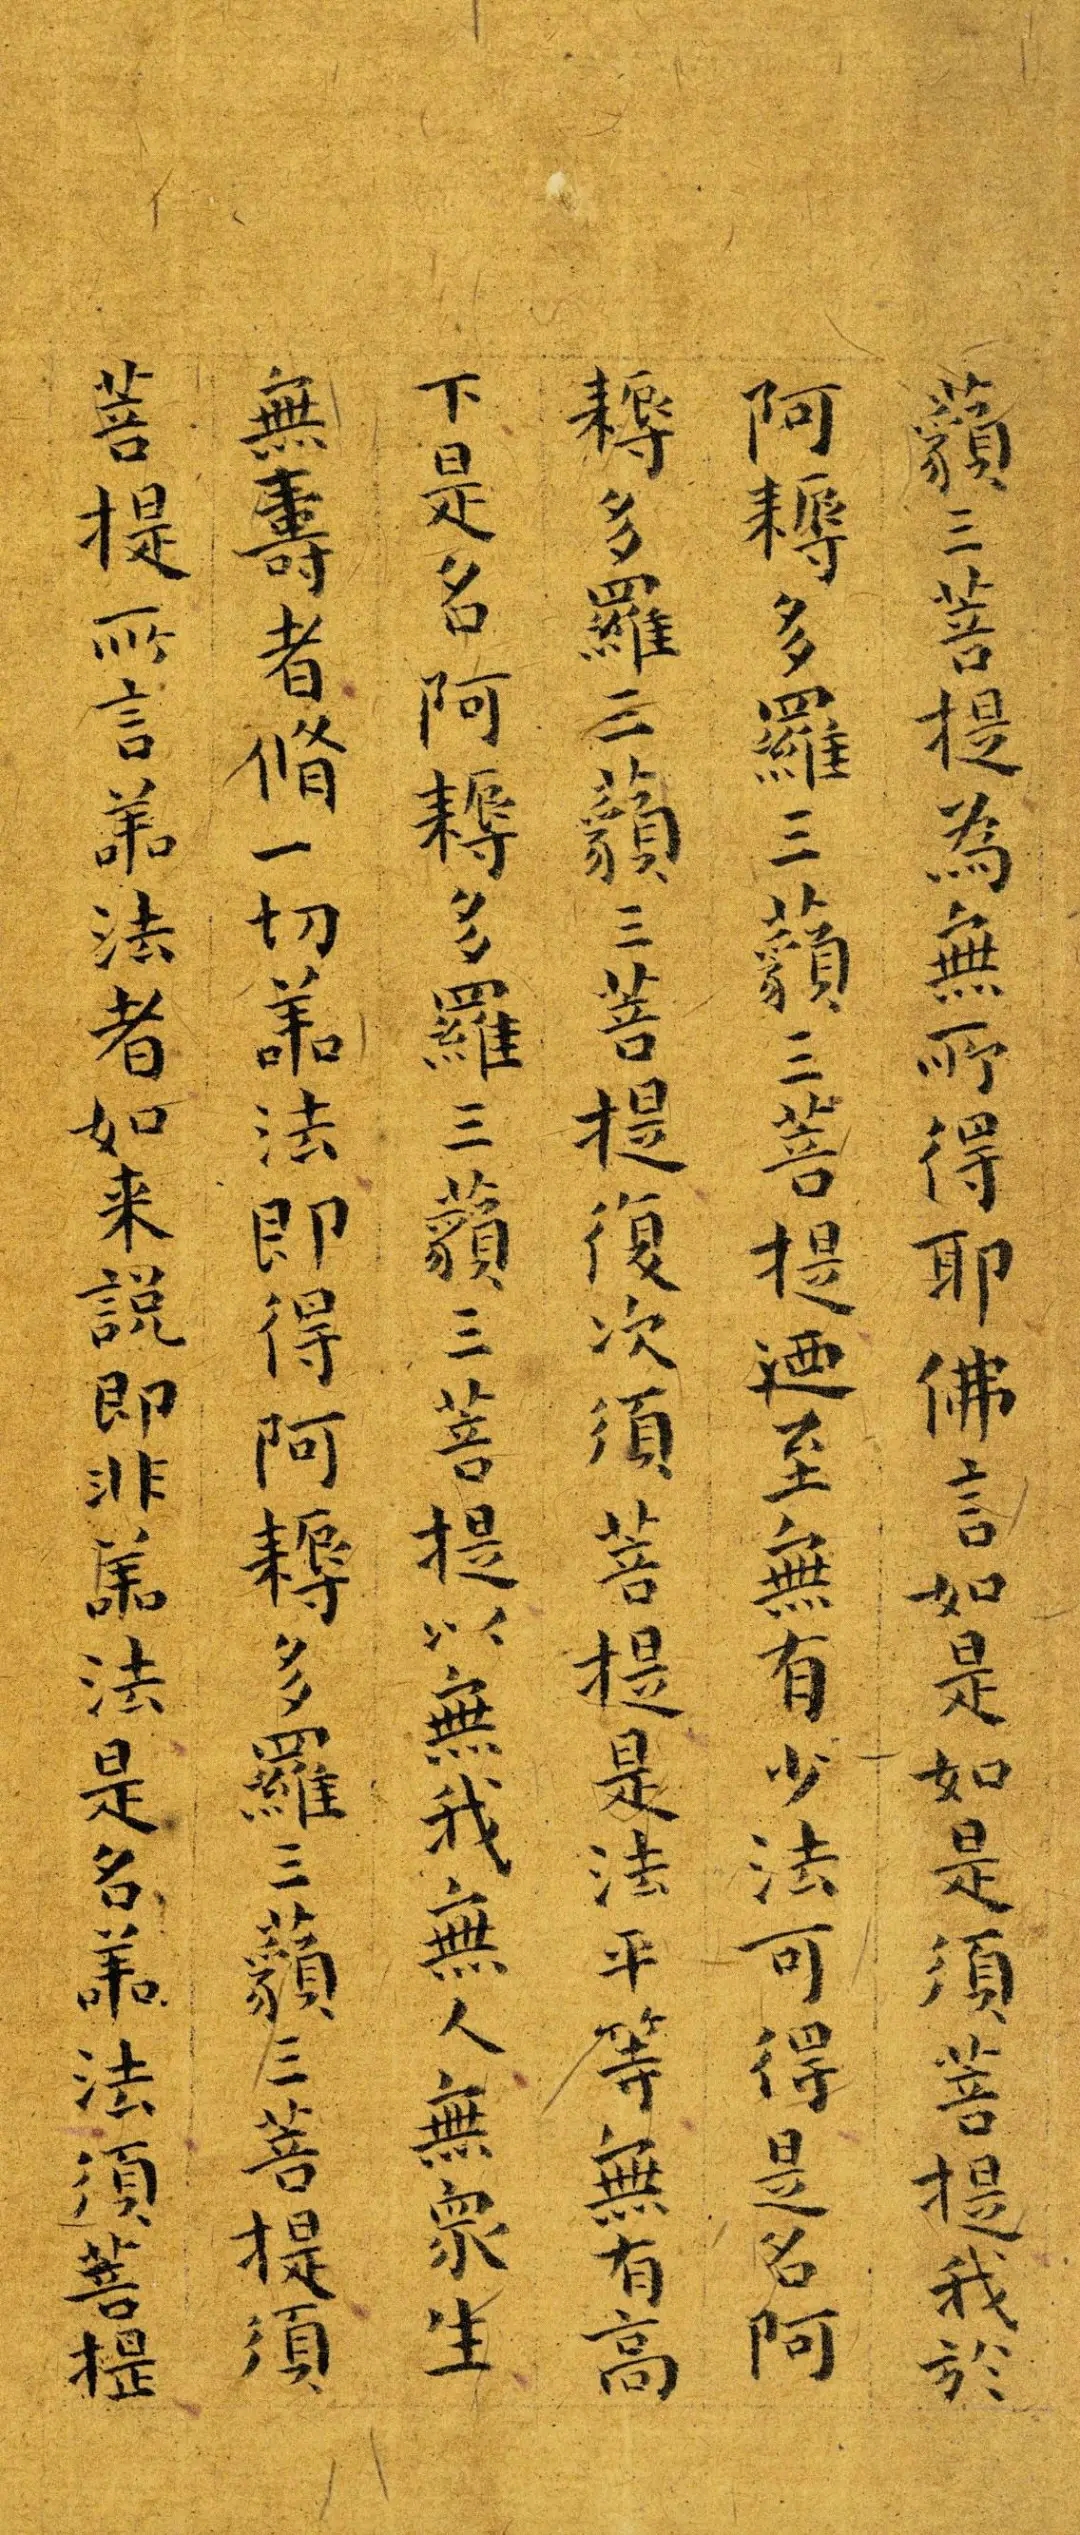 藐三菩提為無所得耶佛言如是如是須菩提我於
阿耨多羅三藐三菩提廼至無有少法可得是名阿
耨多羅三藐三菩提復次須菩提是法平等無有高
下是名阿耨多羅三藐三菩提以無我無人無衆生
無壽者脩一切善法即得阿耨多羅三藐三菩提須
菩提所言善法者如来說即非善法是名善法須菩提